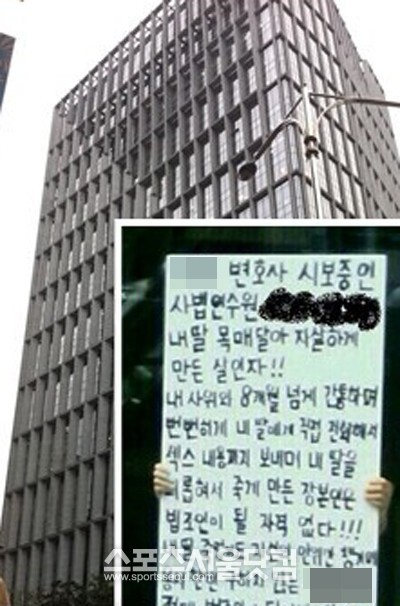 변호사 시보중인
사법연수원
내딸 목매달아 자살하게
만든 살인자!!
내 사위와 8개월 넘게 간통하며
뻔뻔하게 내 딸에게 직접 전화해서
섹스 내용까지 보내며 내 딸을
괴롭혀서 죽게 만든 장본인은
법조인이 될 자격 없다!!!
내딸
스포츠서울닷컴
www.sportsseoul.com